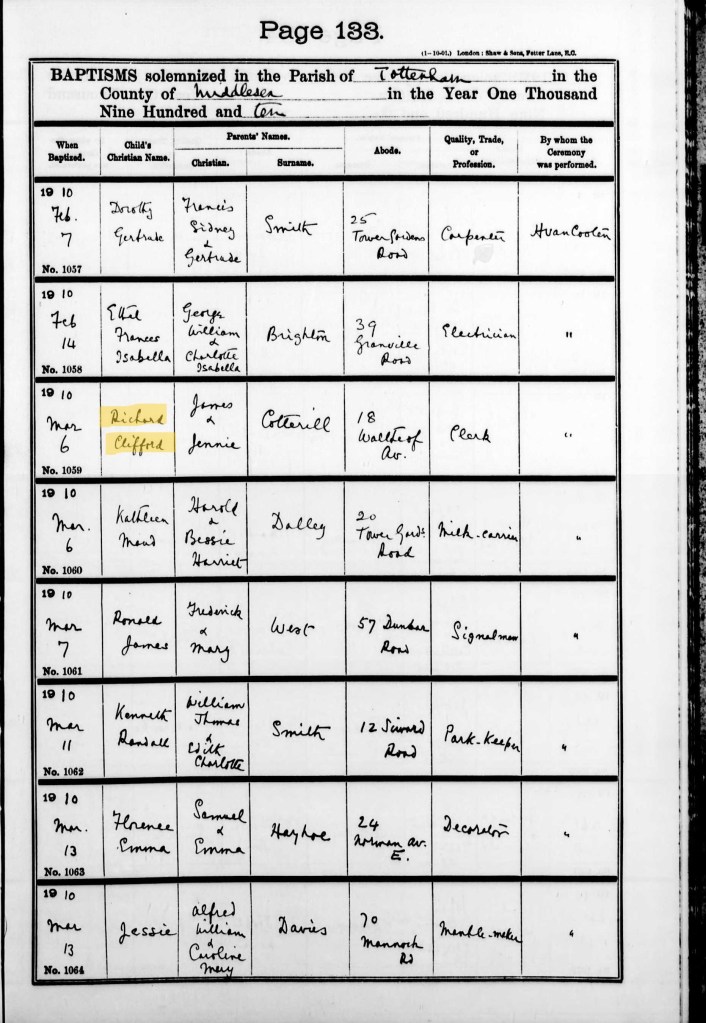 Page 133.
(1–10-01.) London: Shaw & Sons, Fetter Lane, E.C.
BAPTISMS solemnized in the Parish of Tottenham in the
County of Middlesex in the Year One Thousand
Nine Hundred and ten
When Baptized.
Child's Christian Name.
Parents' Names.
Christian.
Surname.
Abode.
Quality, Trade, or Profession.
By whom the Ceremony was performed.
1910
Feb.
7
No. 1057
Dorothy
Gertrude
Francis
Sidney
&
Gertrude
Smith
25
Tower Gardens
Road
Carpenter
H van Coolen
1910
Feb
14
No. 1058
Ethel
Frances
Isabella
George
William
&
Charlotte
Isabella
Brighton
39
Granville
Road
Electrician
"
1910
Mar
6
No. 1059
Richard
Clifford
James
&
Jennie
Cotterill
18
Waltheof
Av.
Clerk
"
1910
Mar.
6
No. 1060
Kathleen
Maud
Harold
&
Bessie
Harriet
Dalley
20
Tower Gards
Road
Milk-carrier
"
1910
Mar
7
No. 1061
Ronald
James
Frederick
&
Mary
West
57 Dunbar
Road
Signalman
"
1910
Mar
11
No. 1062
Kenneth
Randall
William
Thomas
&
Edith
Charlotte
Smith
12 Siward
Road
Park-Keeper
"
1910
Mar.
13
No. 1063
Florence
Emma
Samuel
&
Emma
Hayhoe
24
Norman Av.
E.
Decorator
"
1910
Mar
13
No. 1064
Jessie
Alfred
William
&
Caroline
Mary
Davies
70
Mannock
Rd
Mantle-maker
"